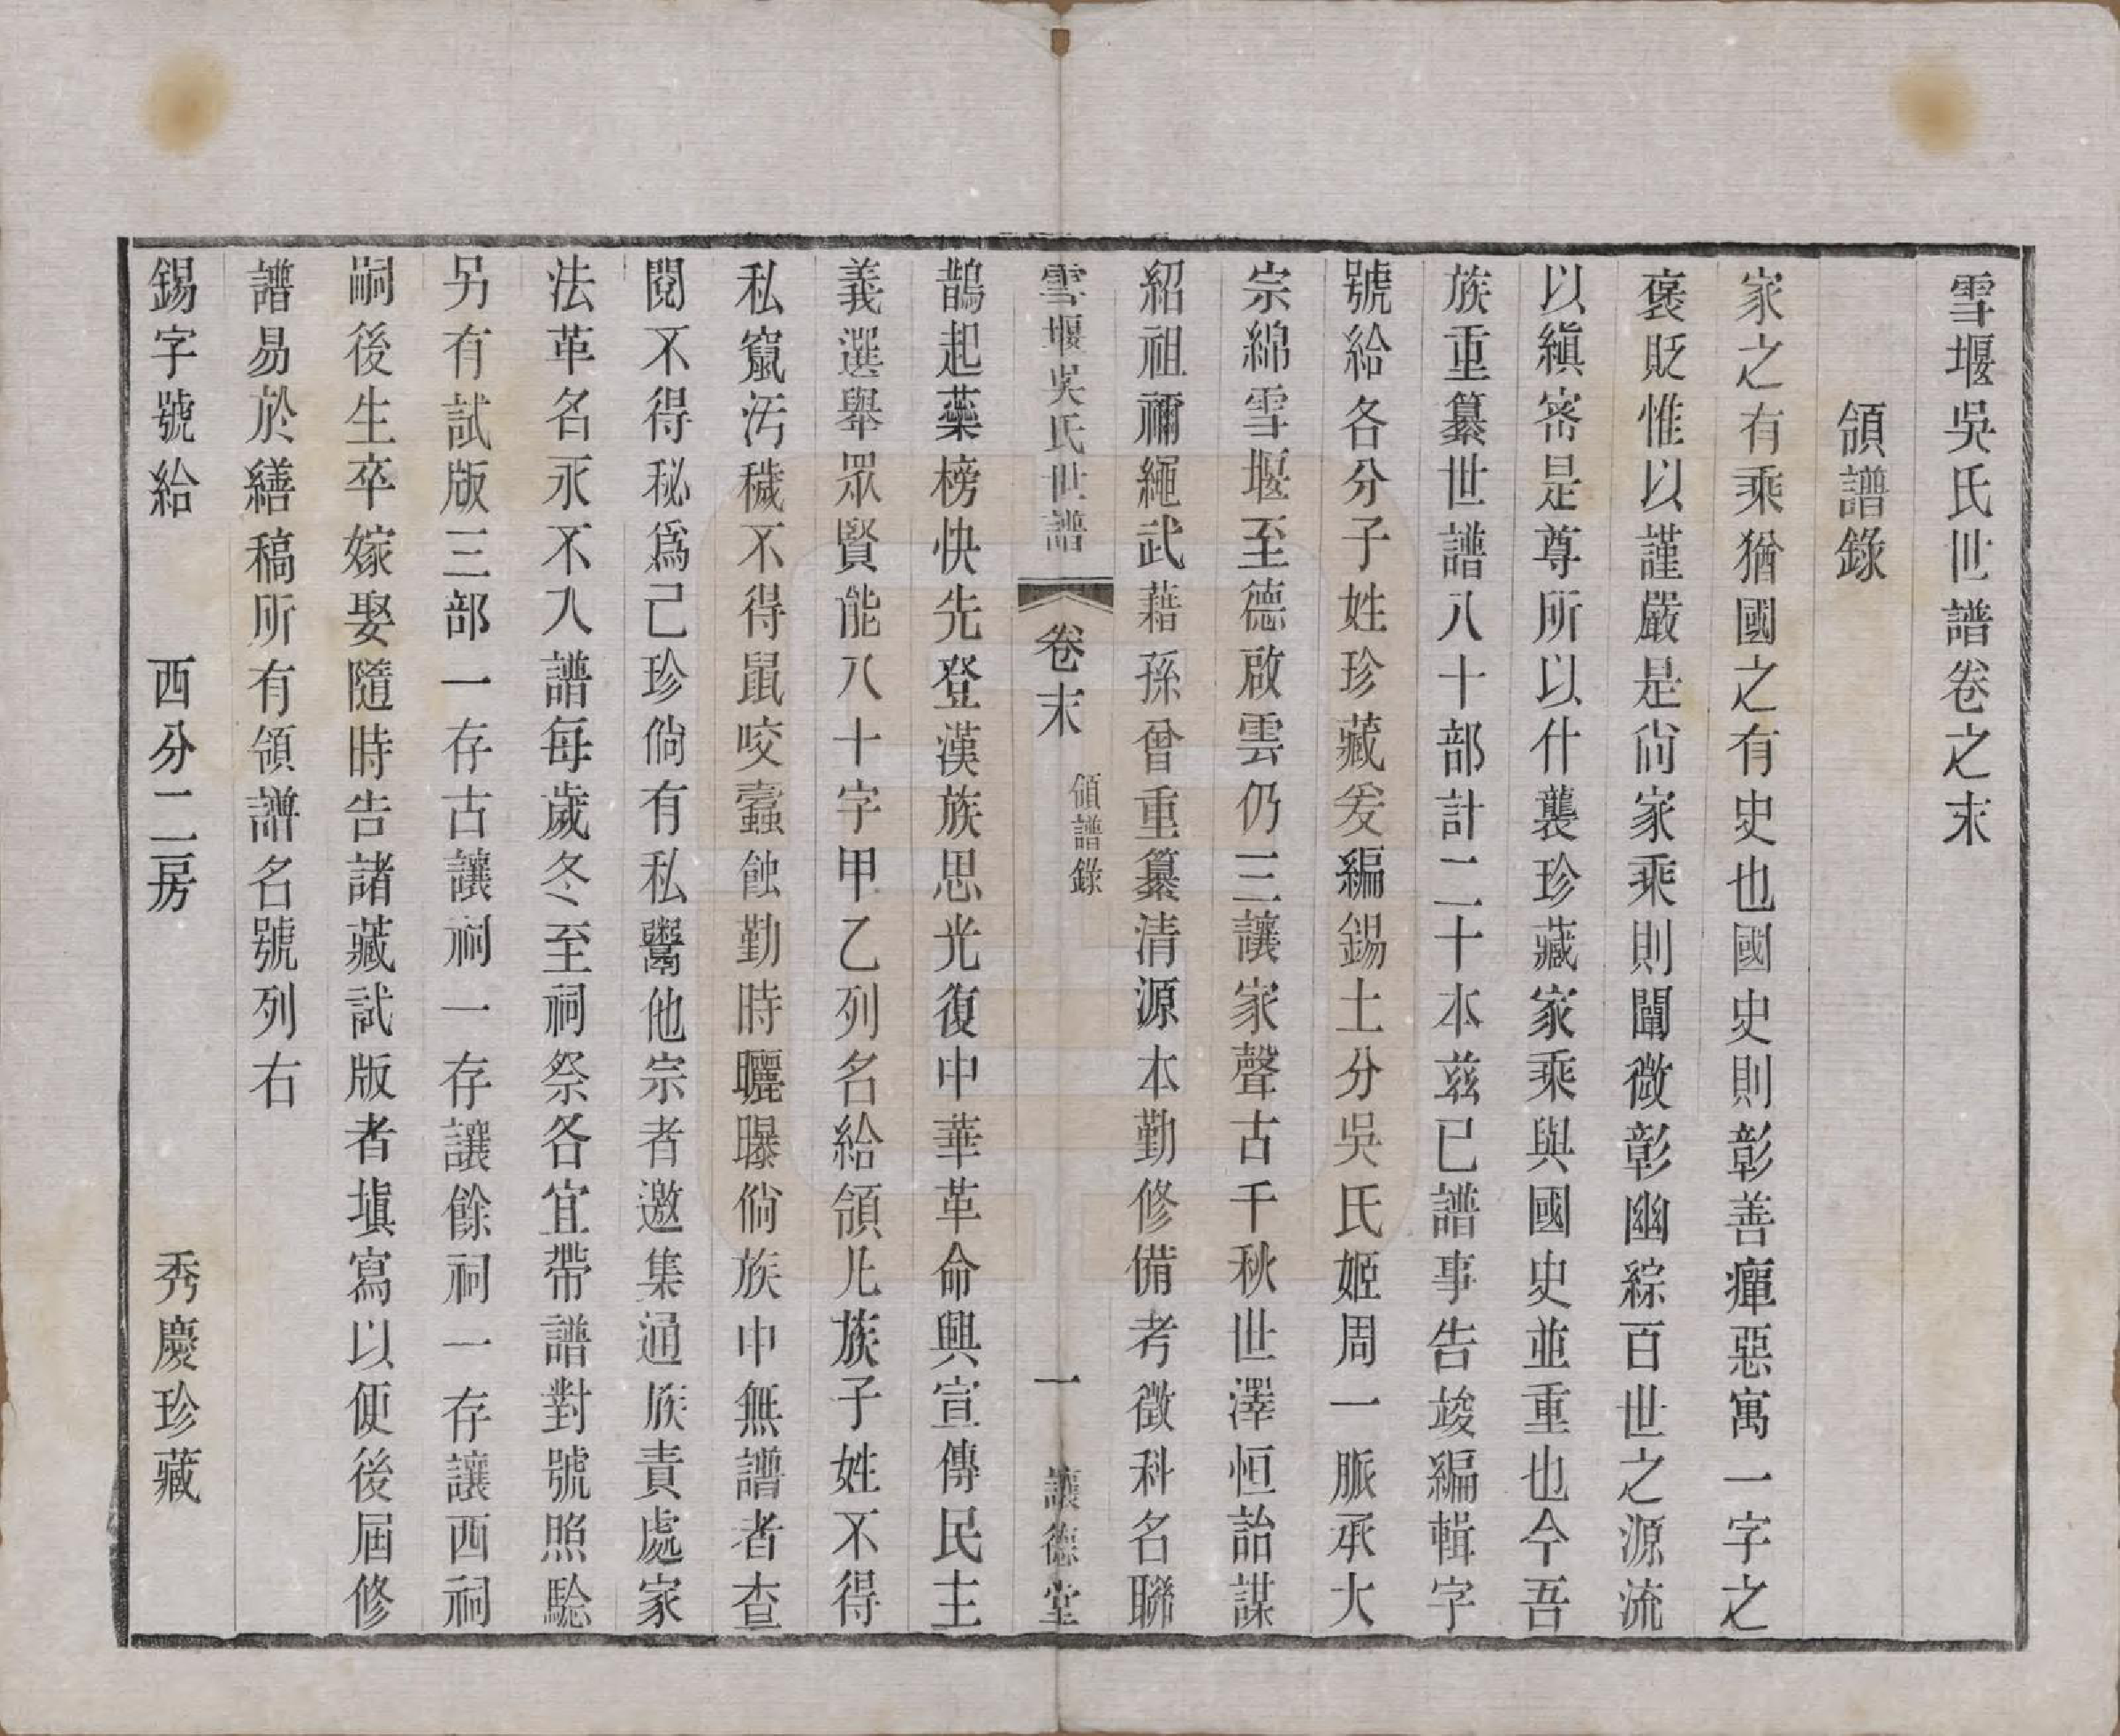 雪堰吳氏世譜卷之末
領譜錄
家之有乘猶國之有史也國史則彰善癉惡寓一字之
褒貶惟以謹嚴是尙家乘則闡微彰幽綜百世之源流
以縝密是尊所以什襲珍藏家乘與國史並重也今吾
族重纂世譜八十部計二十本茲已譜事告竣編輯字
號給各分子姓珍藏爰編錫土分吳氏姬周一脈承大
宗綿雪堰至德啟雲仍三讓家聲古千秋世澤恒詒謀
紹祖禰繩武藉孫曾重纂清源本勤修備考徵科名聯
雪堰吳氏世譜
卷末
領譜錄
一
讓德堂
鵲起蘂榜快先登漢族思光復中華革命興宣傳民主
義選舉眾賢能八十字甲乙列名給領凡族子姓不得
私竄汚穢不得鼠咬蠹蝕勤時曬曝倘族中無譜者查
閱不得秘爲己珍倘有私鬻他宗者邀集通族責處家
法革名永不入譜每歲冬至祠祭各宜帶譜對號照騐
另有試版三部一存古讓祠一存讓餘祠一存讓西祠
嗣後生卒嫁娶隨時告諸藏試版者塡寫以便後屆修
譜易於繕稿所有領譜名號列右
錫字號給　西分二房　秀慶珍藏